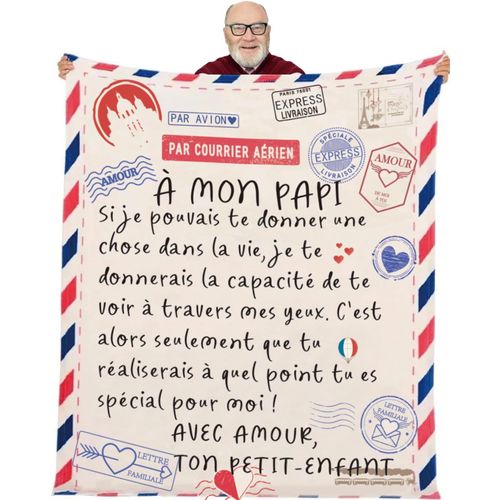 PAR AVION
PARIS 75001
EXPRESS
LIVRAISON
PAR COURRIER AÉRIEN
SPÉCIALE
EXPRESS
LIVRAISON
AMOUR
DE MOI
À TOI
AMOUR
À MON PAPI
Si je pouvais te donner une
chose dans la vie, je te
donnerais la capacité de te
voir à travers mes yeux. C'est
alors seulement que tu
réaliserais à quel point tu es
spécial pour moi !
AVEC AMOUR,
TON PETIT-ENFANT
LETTRE
FAMILIALE
LETTRE FAMILIALE